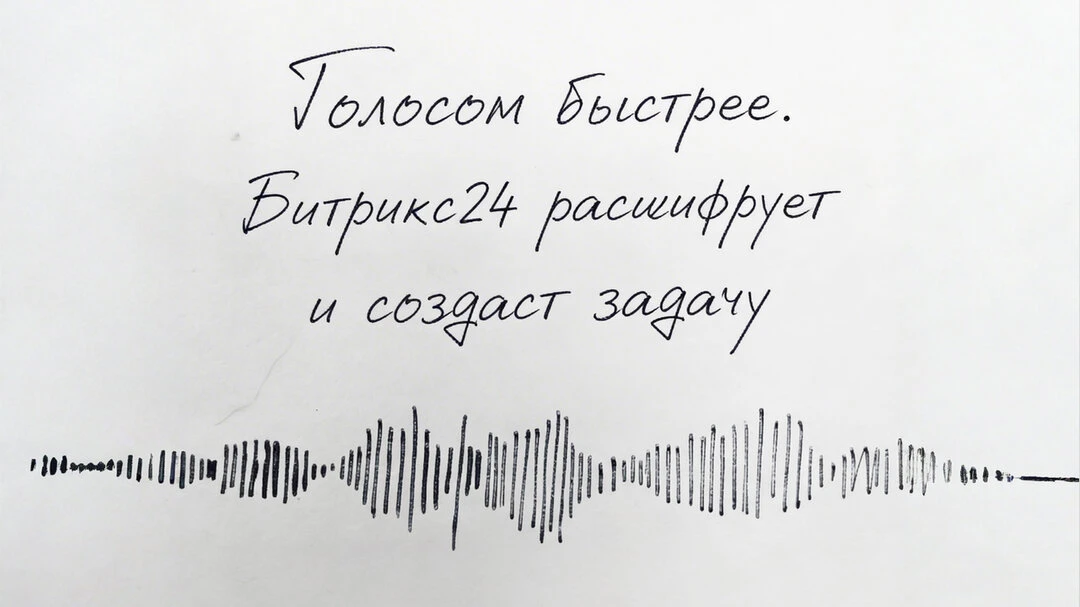 Голосом быстрее.
Битрикс24 расшифрует
и создаст задачу